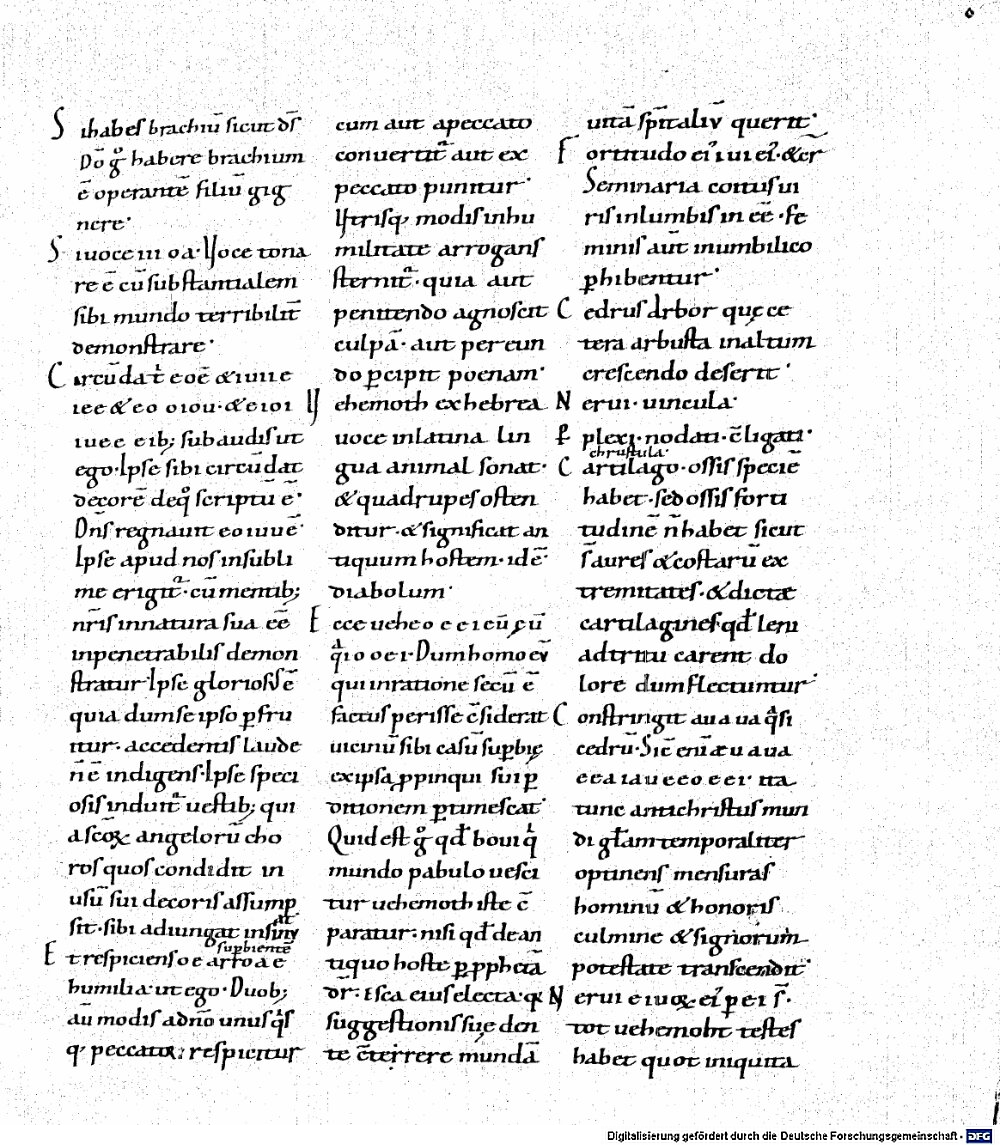 Si habes brachiū sicut d̄s
Dō g̊ habere brachium
ē operantē filiū gig
nere·
Si uoce
Voce tona
re ē cū substantialem
sibi mundo terribilit̄
demonstrare·
Circūdat
subaudis ut
ego· Ipse sibi circūdat
decorē de q̊ scriptū ē·
Dn̄s regnauit
Ipse apud nos in subli
me erigit᷑· cū mentib;
nr̄is in natura sua eē
inpenetrabilis demon
stratur· Ipse gloriosus ē
quia dum se ipso ꝑfru
itur· accedentis laude
n̄ ē indigens· Ipse speci
osis induit᷑ uestib; qui
a sc̄oꝝ angelorū cho
ros quos condidit in
usū sui decoris assump
sit· sibi adiungat
Et respiciens superbiente
humilia ut ego· Duob;
aū modis ad
peccator respicitur
cum aut a peccato
conuertit᷑ aut ex
peccato punitur·
Vtrisq; modis in hu
militate arrogans
sternit᷑· quia aut
penitendo agnoscit
culpā· aut pereun
do ꝑcipit poenam·
Vehemoth ex hebrea
uoce in latina lin
gua animal sonat·
& quadrupes osten
ditur· & significat an
tiquum hostem· id ē
diabolum·
Ecce uehe
Dum homo
qui in ratione secū ē
factus perisse c̄siderat
uicinū sibi casū suꝑbię
ex ipsa ꝓpinqui sui ꝑ
ditionem ꝑtimescat·
Quid est g̊ qd̄ boui
mundo pabulo uesci
tur uehemoth iste c̄
paratur· nisi qd̄ de an
tiquo hoste ꝑ ꝓphetā
dr̄· esca eius electa·
suggestionis suę den
te c̄terrere mundā
uitā spiritaliū querit·
Fortitudo ei᷒
Seminaria coitus ui
ris in lumbis inee· fe
minis aūt in umbilico
ꝑhibentur·
Cedrus arbor quę ce
tera arbusta in altum
crescendo deserit·
Nerui· uincula·
Pplexi· nodati· c̄ligati·
chrustula·
Cartilago· ossis speciē
habet· sed ossis forti
tudinē n̄ habet sicut
s̄ aures & costarū ex
tremitates· & dictæ
cartilagines· qd̄ leni
adtritu carent do
lore dum flectuntur·
Constringit
cedrū· Sic eni
ita
tunc antichristus mun
di gl̄am temporaliter
optinens mensuras
hominū & honoris
culmine & signorum
potestate transcendit·
Nerui
tot uehemoht testes
habet quot iniquita
Digitalisierung gefördert durch die Deutsche Forschungsgemeinschaft - DFG